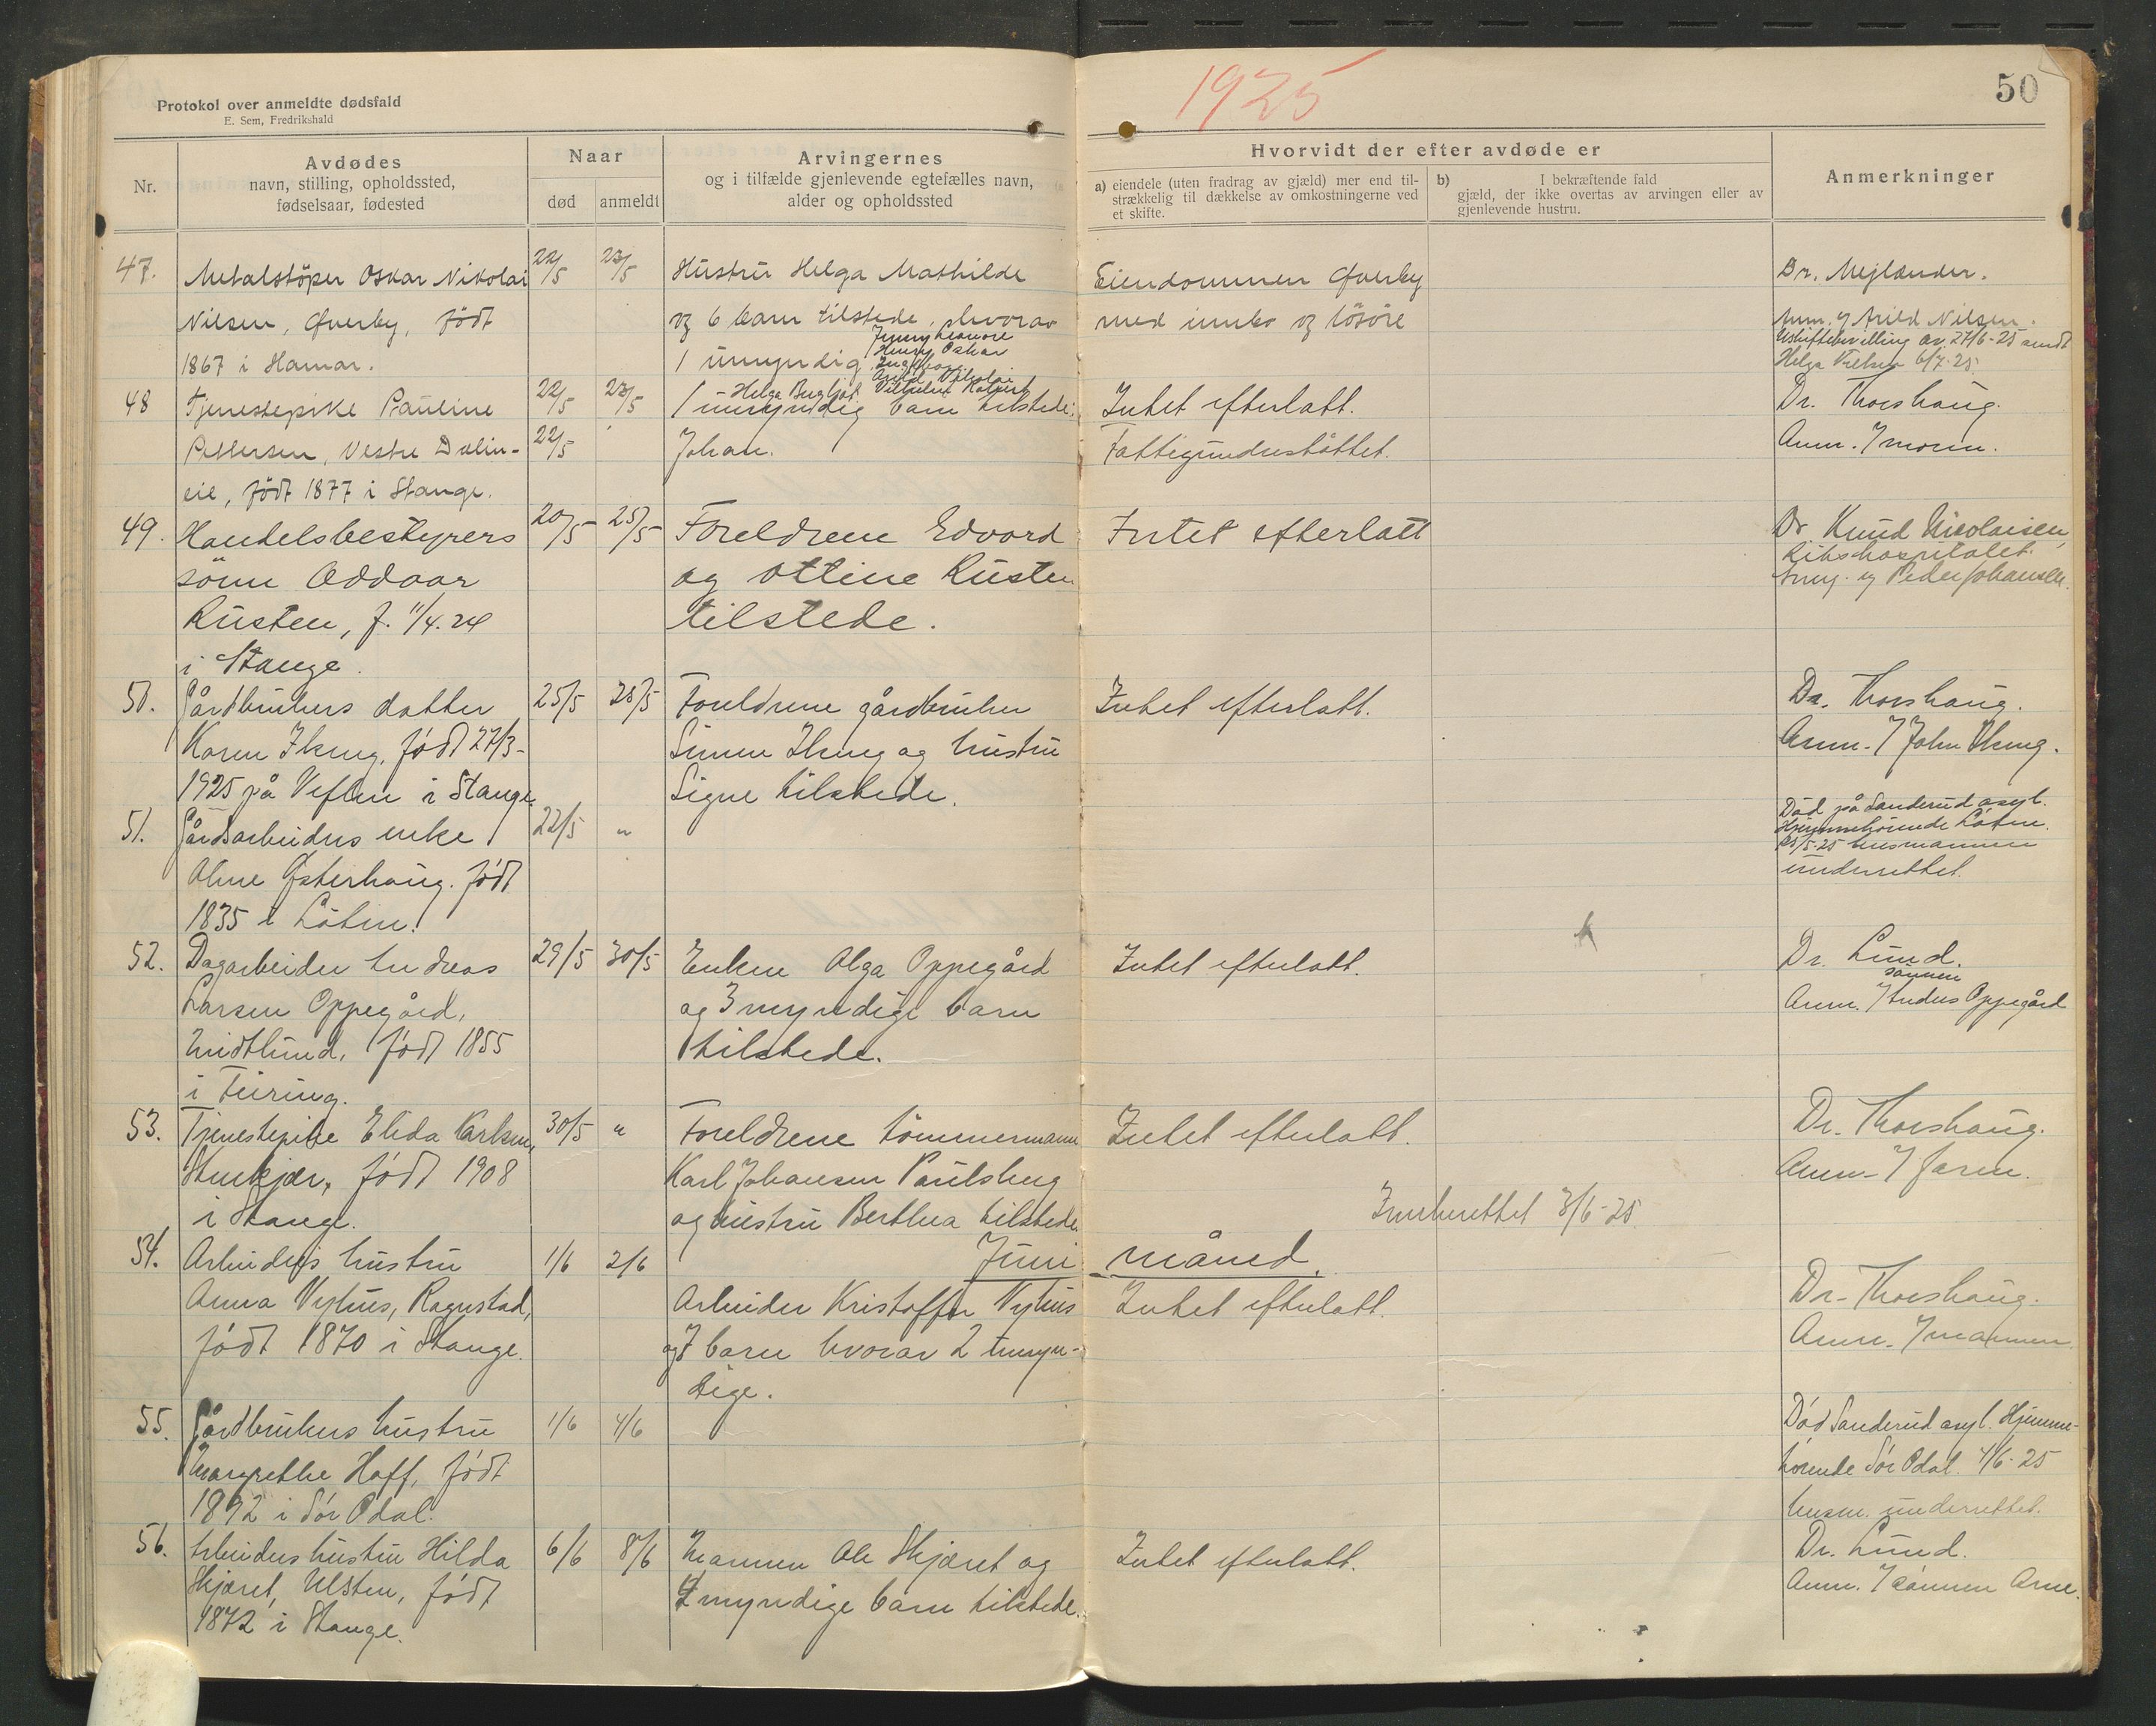 1925
50
Protokol over anmeldte dødsfald
E. Sem, Fredrikshald
Nr.
Avdødes
navn, stilling, opholdssted,
fødselsaar, fødested
Naar
død
anmeldt
Arvingernes
og i tilfælde gjenlevende egtefælles navn,
alder og opholdssted
Hvorvidt der efter avdøde er
a) eiendele (uten fradrag av gjæld) mer end til-
strækkelig til dækkelse av omkostningerne ved
et skifte.
b) I bekræftende fald
gjæld, der ikke overtas av arvingen eller av
gjenlevende hustru.
Anmerkninger
47. Metalstöper Oskar Nikolai 22/5 23/5 Hustru Helga Mathilde Eiendommen Øverby Dr. Mejlænder.
Nilsen, Øverby, född og 6 barn tilstede, hvorav med innbo og lösöre Anm. Arild Nilsen.
Jenny Leonore
Uskiftebevilling av 27/6-25 sendt
1867 i Hamar. 1 umyndig Henry Oskar
Helga Nielsen 6/7-25.
Helga Bergljot
48 Tjenestepike Pauline 22/5 23/5 1 umyndig barn tilstede: Intet efterlatt. Dr. Thorshaug.
Pettersen, Vestre Dælin- 22/5 Johan. Fattigunderstøttet. Anm. moren.
eie, född 1877 i Stange.
49. Handelsbestyrers 20/5 25/5 Foreldrene Edvard Intet efterlatt Dr. Knud Nicolaisen,
Rikshospitalet.
sönn Oddvar og Ottine Rusten Peder Johansen.
Rusten, f. 11/4.24 tilstede.
i Stange.
50. Gårdbrukers datter 25/5 28/5 Foreldrene gårdbruker Intet efterlatt. Dr. Thorshaug.
Karen Ihrng, född 27/3- Simen og hustru Anm. John
1925 på i Stange Signe tilstede.
51. Gårdsarbeiders enke 22/5 " Död på Sanderud asyl.
Hjemmehörende Löten.
Oline Østerhaug. född 25/5-25 lensmannen
underrettet.
1835 i Löten.
52. Dagarbeider Andreas 29/5 30/5 Enken Olga Oppegård Intet efterlatt. Dr. Lund.
sönnen
Larsen Oppegård, og 3 myndige barn Anm. Anders Oppegård
Midtlund, född 1855 tilstede.
i Feiring.
53. Tjenestepike Elida Karlsen, 30/5 " Foreldrene tömmermann Intet efterlatt. Dr. Thorshaug.
född 1908 Karl Johansen Paulsberg Anm. faren.
i Stange. og hustru Berthea tilstede.
Innberettet 3/6-25.
Juni måned.
54. Arbeiders hustru 1/6 2/6
Anna Nyhus, Rognstad, Arbeider Kristoffer Nyhus Intet efterlatt. Dr. Thorshaug.
född 1870 i Stange. og 7 barn hvorav 2 umyn- Anm. mannen.
dige.
55. Gårdbrukers hustru 1/6 4/6 Död Sanderud asyl. Hjemme-
Margrethe Hoff, född hörende Sör Odal. 4/6-25
1892 i Sör Odal. lensm. underrettet.
56. Arbeiders hustru Hilda 6/6 8/6 Mannen Ole Skjæret og Intet efterlatt. Dr. Lund.
Skjæret, Ulsten, född 4 myndige barn tilstede. Anm. sönnen Arne.
1872 i Stange.